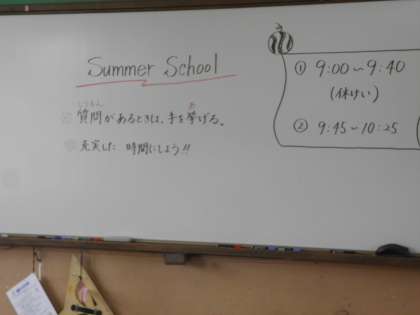 Summer School
しつもん
質問があるときは、手を挙げる。
あ
充実した 時間にしよう!!
① 9:00~9:40
(休けい)
② 9:45~10:25